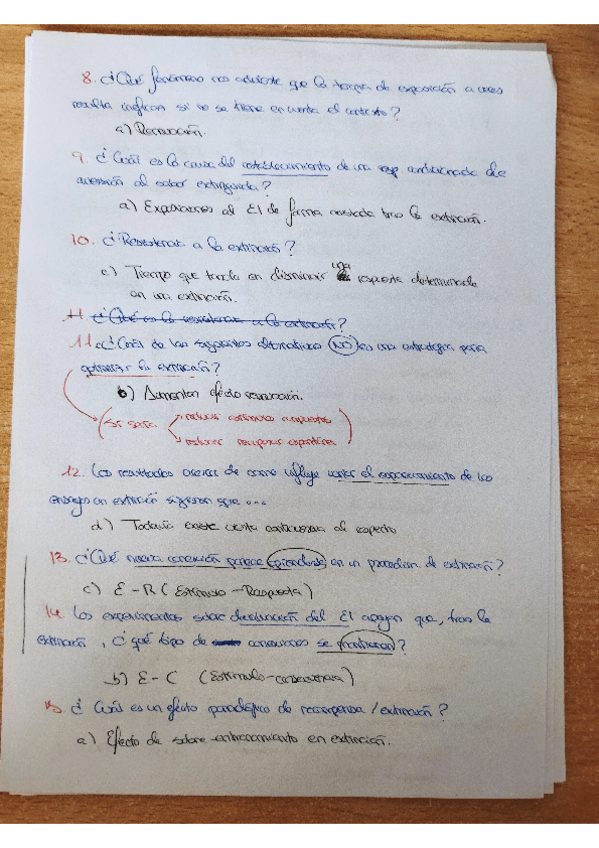 8. ¿Qué fenómeno nos advierte que la terapia de exposición a veces
resulta ineficaz si no se tiene en cuenta el contexto?
a) Renovación.
9. ¿Cuál es la causa del restablecimiento de una resp. condicionada de
aversión al sabor extinguida?
a) Exposiciones al EI de forma aislada tras la extinción.
10. ¿Resistencia a la extinción?
c) Tiempo que tarda en disminuir una respuesta determinada
en una extinción.
11 ¿Qué es la resistencia a la extinción?
11. ¿Cuál de las siguientes alternativas NO es una estrategia para
optimizar la extinción?
b) Aumentar efecto renovación.
(sí sería reducir estímulo
reducir recuperac espontánea)
12. Los resultados acerca de como influye variar el espaciamiento de los
ensayos en extinción sugieren que ...
d) Todavía existe cierta controversia al respecto
13. ¿Qué nueva conexión parece aprenderse en un procedim. de extinción?
c) E-R (Estímulo-Respuesta)
14. Los experimentos sobre devaluación del EI apoyan que, tras la
extinción, ¿qué tipo de conexiones se mantienen?
b) E-C (Estímulo-consecuencia)
15. ¿Cuál es un efecto paradójico de recompensa/extinción?
a) Efecto de sobre-entrenamiento en extinción.